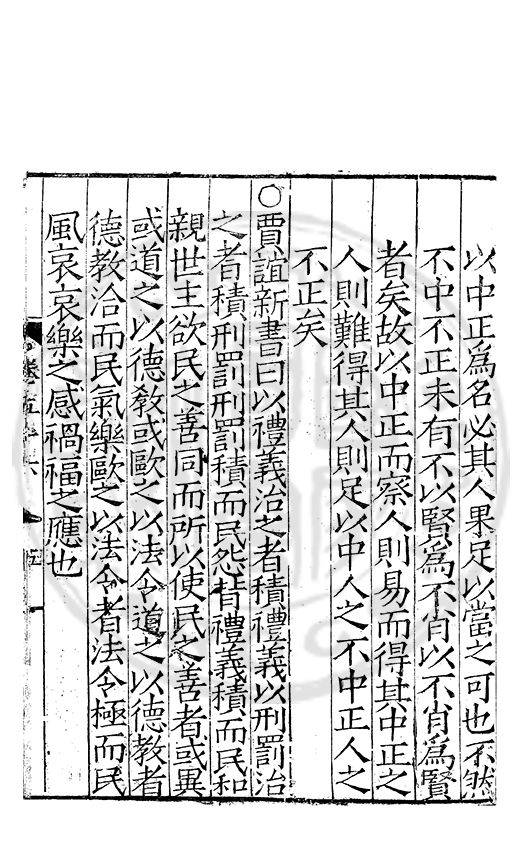 以中正爲名必其人果足以當之可也不然
不中不正未有不以賢爲不肖以不肖爲賢
者矣故以中正而察人則易而得其中正之
人則難得其人則足以中人之不中正人之
不正矣
○賈誼新書曰以禮義治之者積禮義以刑罰治
之者積刑罰刑罰積而民怨背禮義積而民和
親世主欲民之善同而所以使民之善者或異
或道之以德敎或歐之以法令道之以德教者
德教洽而民氣樂歐之以法令者法令極而民
風哀哀樂之感禍福之應也
卷五十六
五